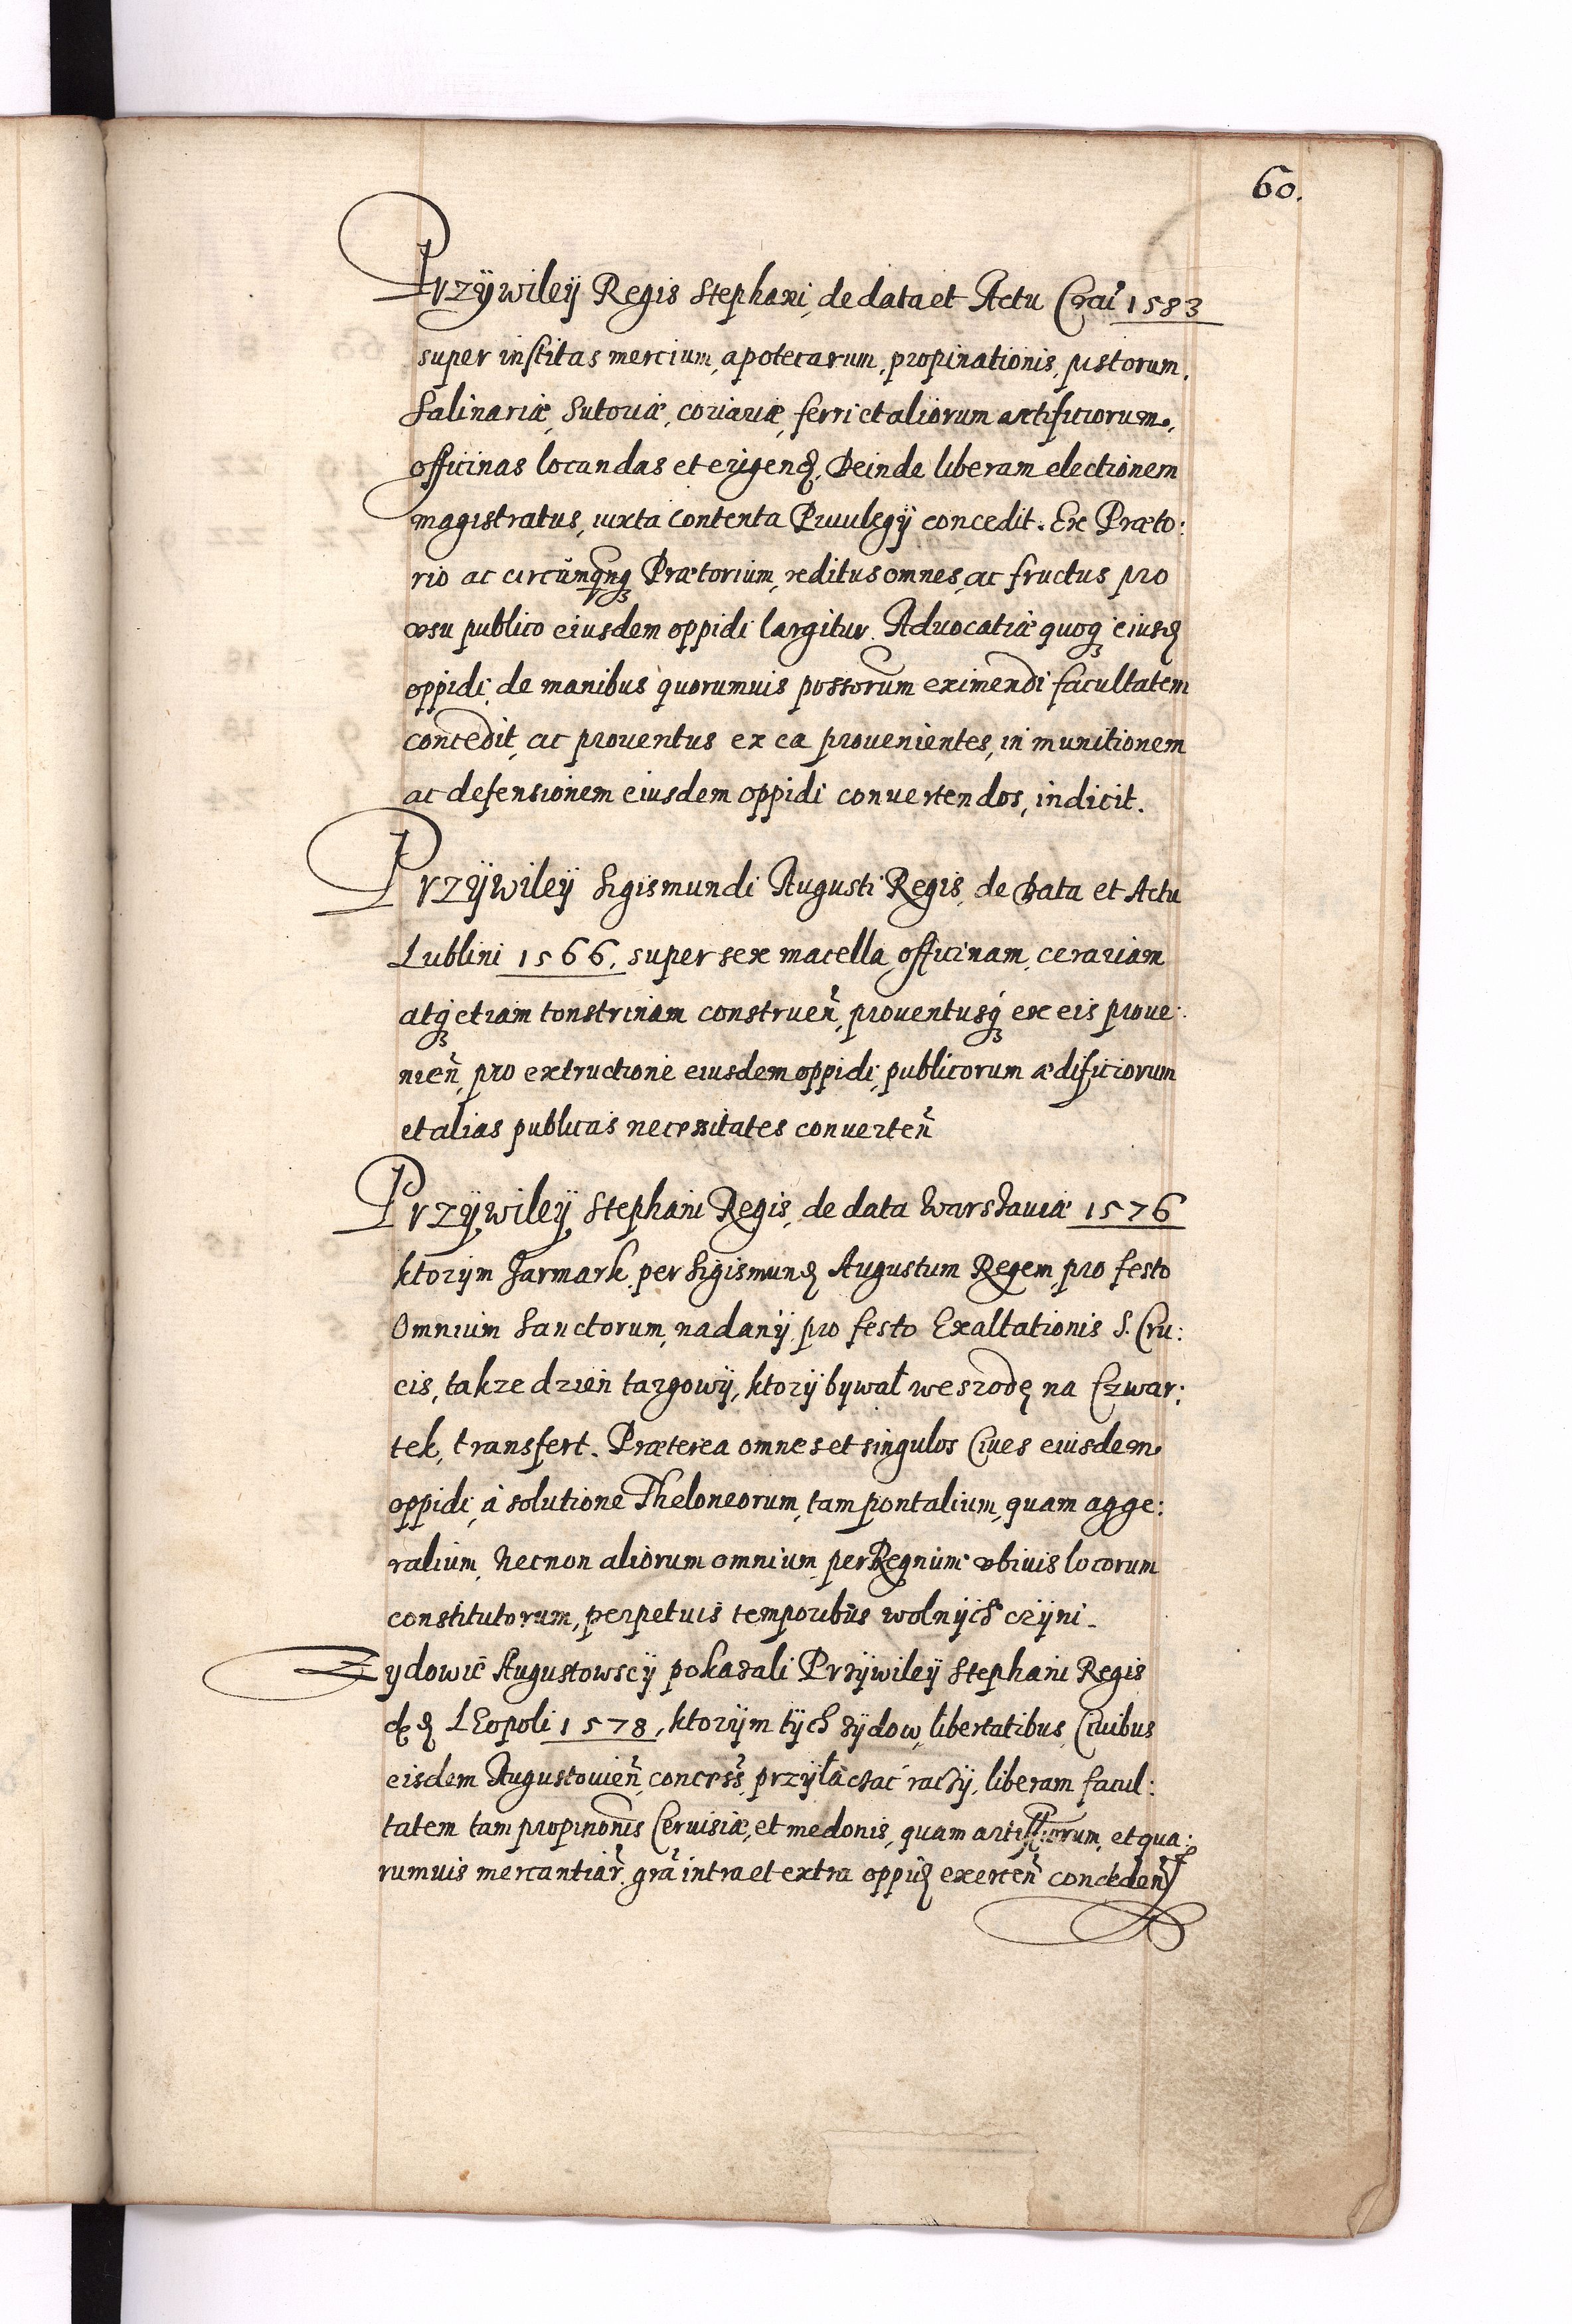 60.
Przÿwileÿ Regis Stephani, de data et Actu Craĉ 1583
super institas mercium, apotecarum, propinationis, pistorum,
Salinariæ, Sutoriæ, coriariæ, ferri et aliorum artificiorum,
officinas locandas et erigend. Deinde liberam electionem
magistratus, iuxta contenta Priuilegÿ concedit. Ex Præto:
rio ac circumqnq Prætorium, reditus omnes, ac fructus pro
vsu publico eiusdem oppidi largitur. Aduocatiæ quoq eiusd
oppidi, de manibus quorumuis possorum eximendi facultatem
concedit, ac prouentus ex ea prouenientes, in munitionem
ac defensionem eiusdem oppidi conuertendos, indicit.
Przÿwileÿ Sigismundi Augusti Regis, de Data et Actu
Lublini 1566. super sex macella, officinam, cerariam
atq etiam tonstrinam construen, prouentusq ex eis proue:
nien, pro extructione eiusdem oppidi, publicorum ædificiorum
et alias publicas necessitates conuerten
Przÿwileÿ Stephani Regis, de data Warshauiæ 1576
ktorÿm Jarmark, per Sigismund Augustum Regem, pro festo
Omnium Sanctorum, nadanÿ, pro festo Exaltationis S. Cru:
cis, takze dzien targowÿ, ktorÿ bywał we srodę na Czwar:
tek, transfert. Præterea omnes et singulos Ciues eiusdem
oppidi, à solutione Theloneorum, tam pontalium, quam agge:
ralium, necnon aliorum omnium, per Regnum vbiuis locorum
constitutorum, perpetuis temporibus wolnÿch czÿni.
Zydowie Augustowscÿ pokazali Przÿwileÿ Stephani Regis
dd LEopoli 1578, ktorÿm tÿch zÿdow, libertatibus, Ciuibus
eisdem Augustouien, concess, przÿłączac raczÿ, liberam facul:
tatem tam propinonis Ceruisiæ, et medonis, quam artificiorum, et qua:
rumuis mercantiar, gra intra et extra oppid exercen conceden